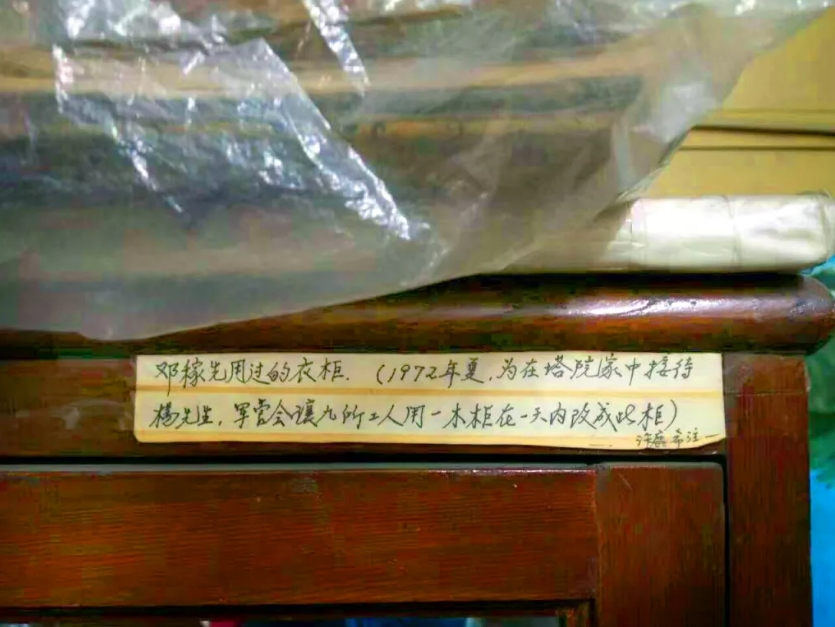 邓稼先用过的衣柜. (1972年夏,为在塔院家中接待
杨先生,军管会让九所工人用一木柜在一天内改成此柜)
许鹿希注